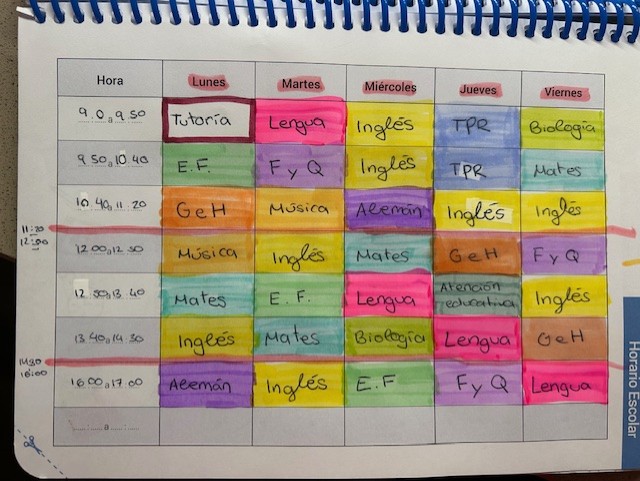 Hora Lunes Martes Miércoles Jueves Viernes
9.0 a 9.50 Tutoría Lengua Inglés TPR Biología
9 50 a 10.40 E.F. F y Q Inglés TPR Mates
10 40 a 11.20 G e H Música Alemán Inglés Inglés
11:20
12:00
12 00 a 12 50 Música Inglés Mates G e H F y Q
12 50 a 13.40 Mates E.F. Lengua Atención educativa Inglés
13 40 a 14 30 Inglés Mates Biología Lengua G e H
14:30
16:00
16 00 a 17.00 Alemán Inglés E.F F y Q Lengua
a
Horario Escolar